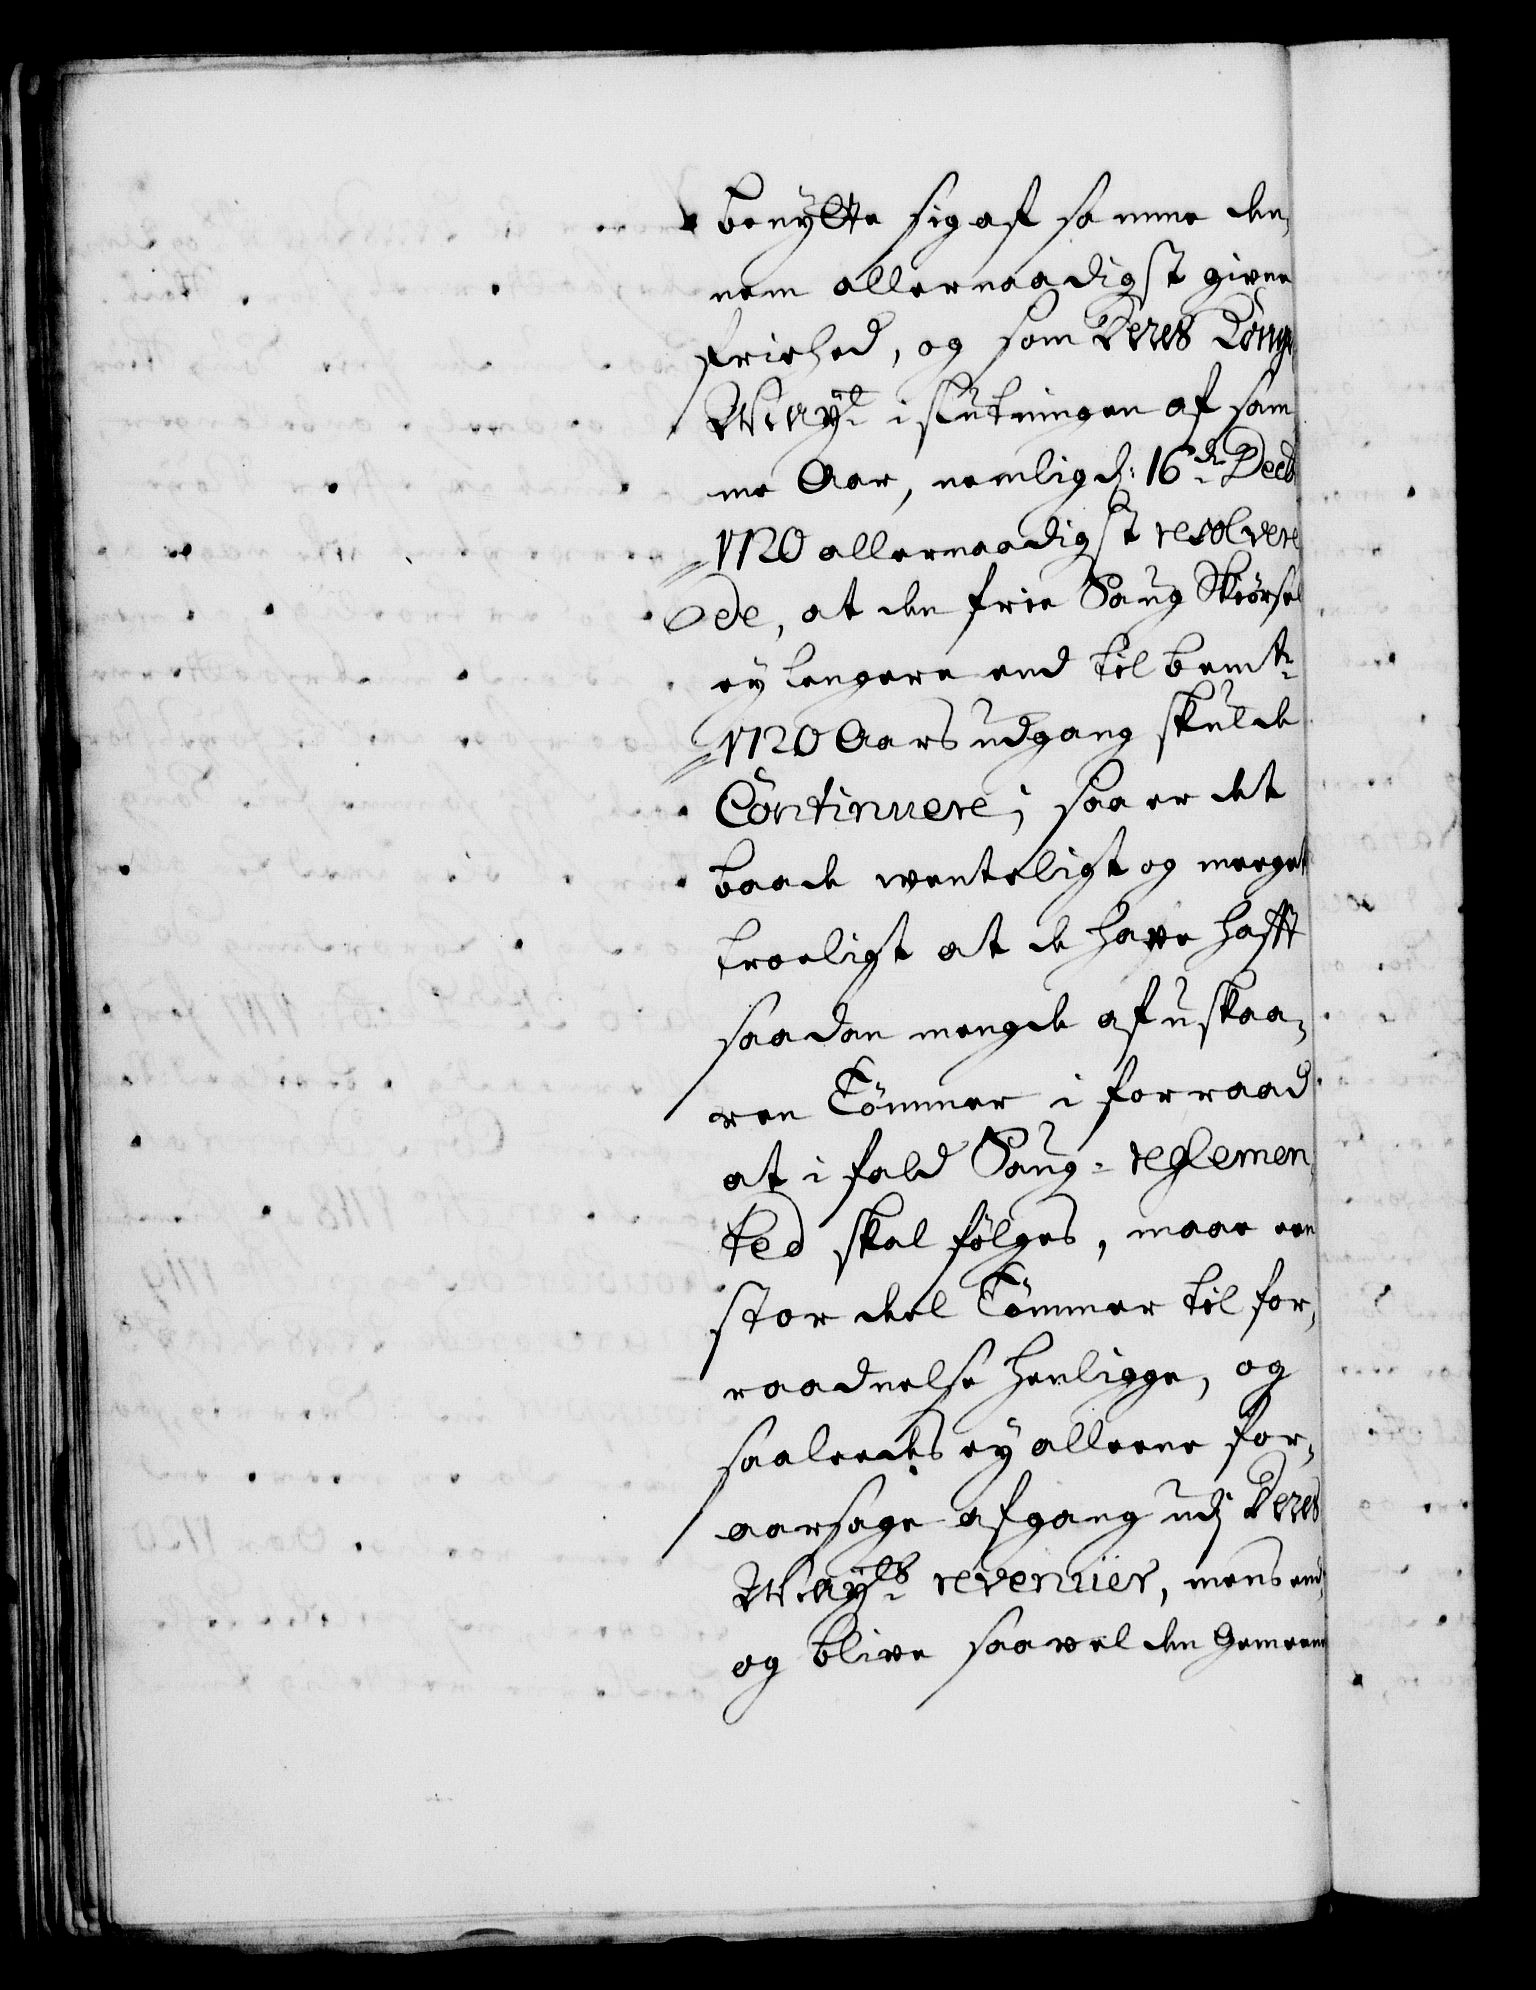 benytte sig af samme den,
nem allernaadigst givne
friehed, og som Deres Konge
Mayt: i slutningen af sam
me Aar, nemlig d: 16de Decb
1720 allernaadigst resolvere
de, at den frie Saug Skiørsel
ey lengere end til bemte
1720 Aars udgang skulde
Continuere; saa er det
baade wenteligt og meeget
troeligt at de have hafft
saadan mengde af uskaa,
ren Tømmer i forraad
at i fald Saug-reglemen,
ted skal følges, maae een
stor deel Tømmer til for,
raadnelse henligge, og
saaleedes ey alleene for,
aarsage afgang udj Deres
Mayts: revenuer, mens end
og blive saavel den Gemeene